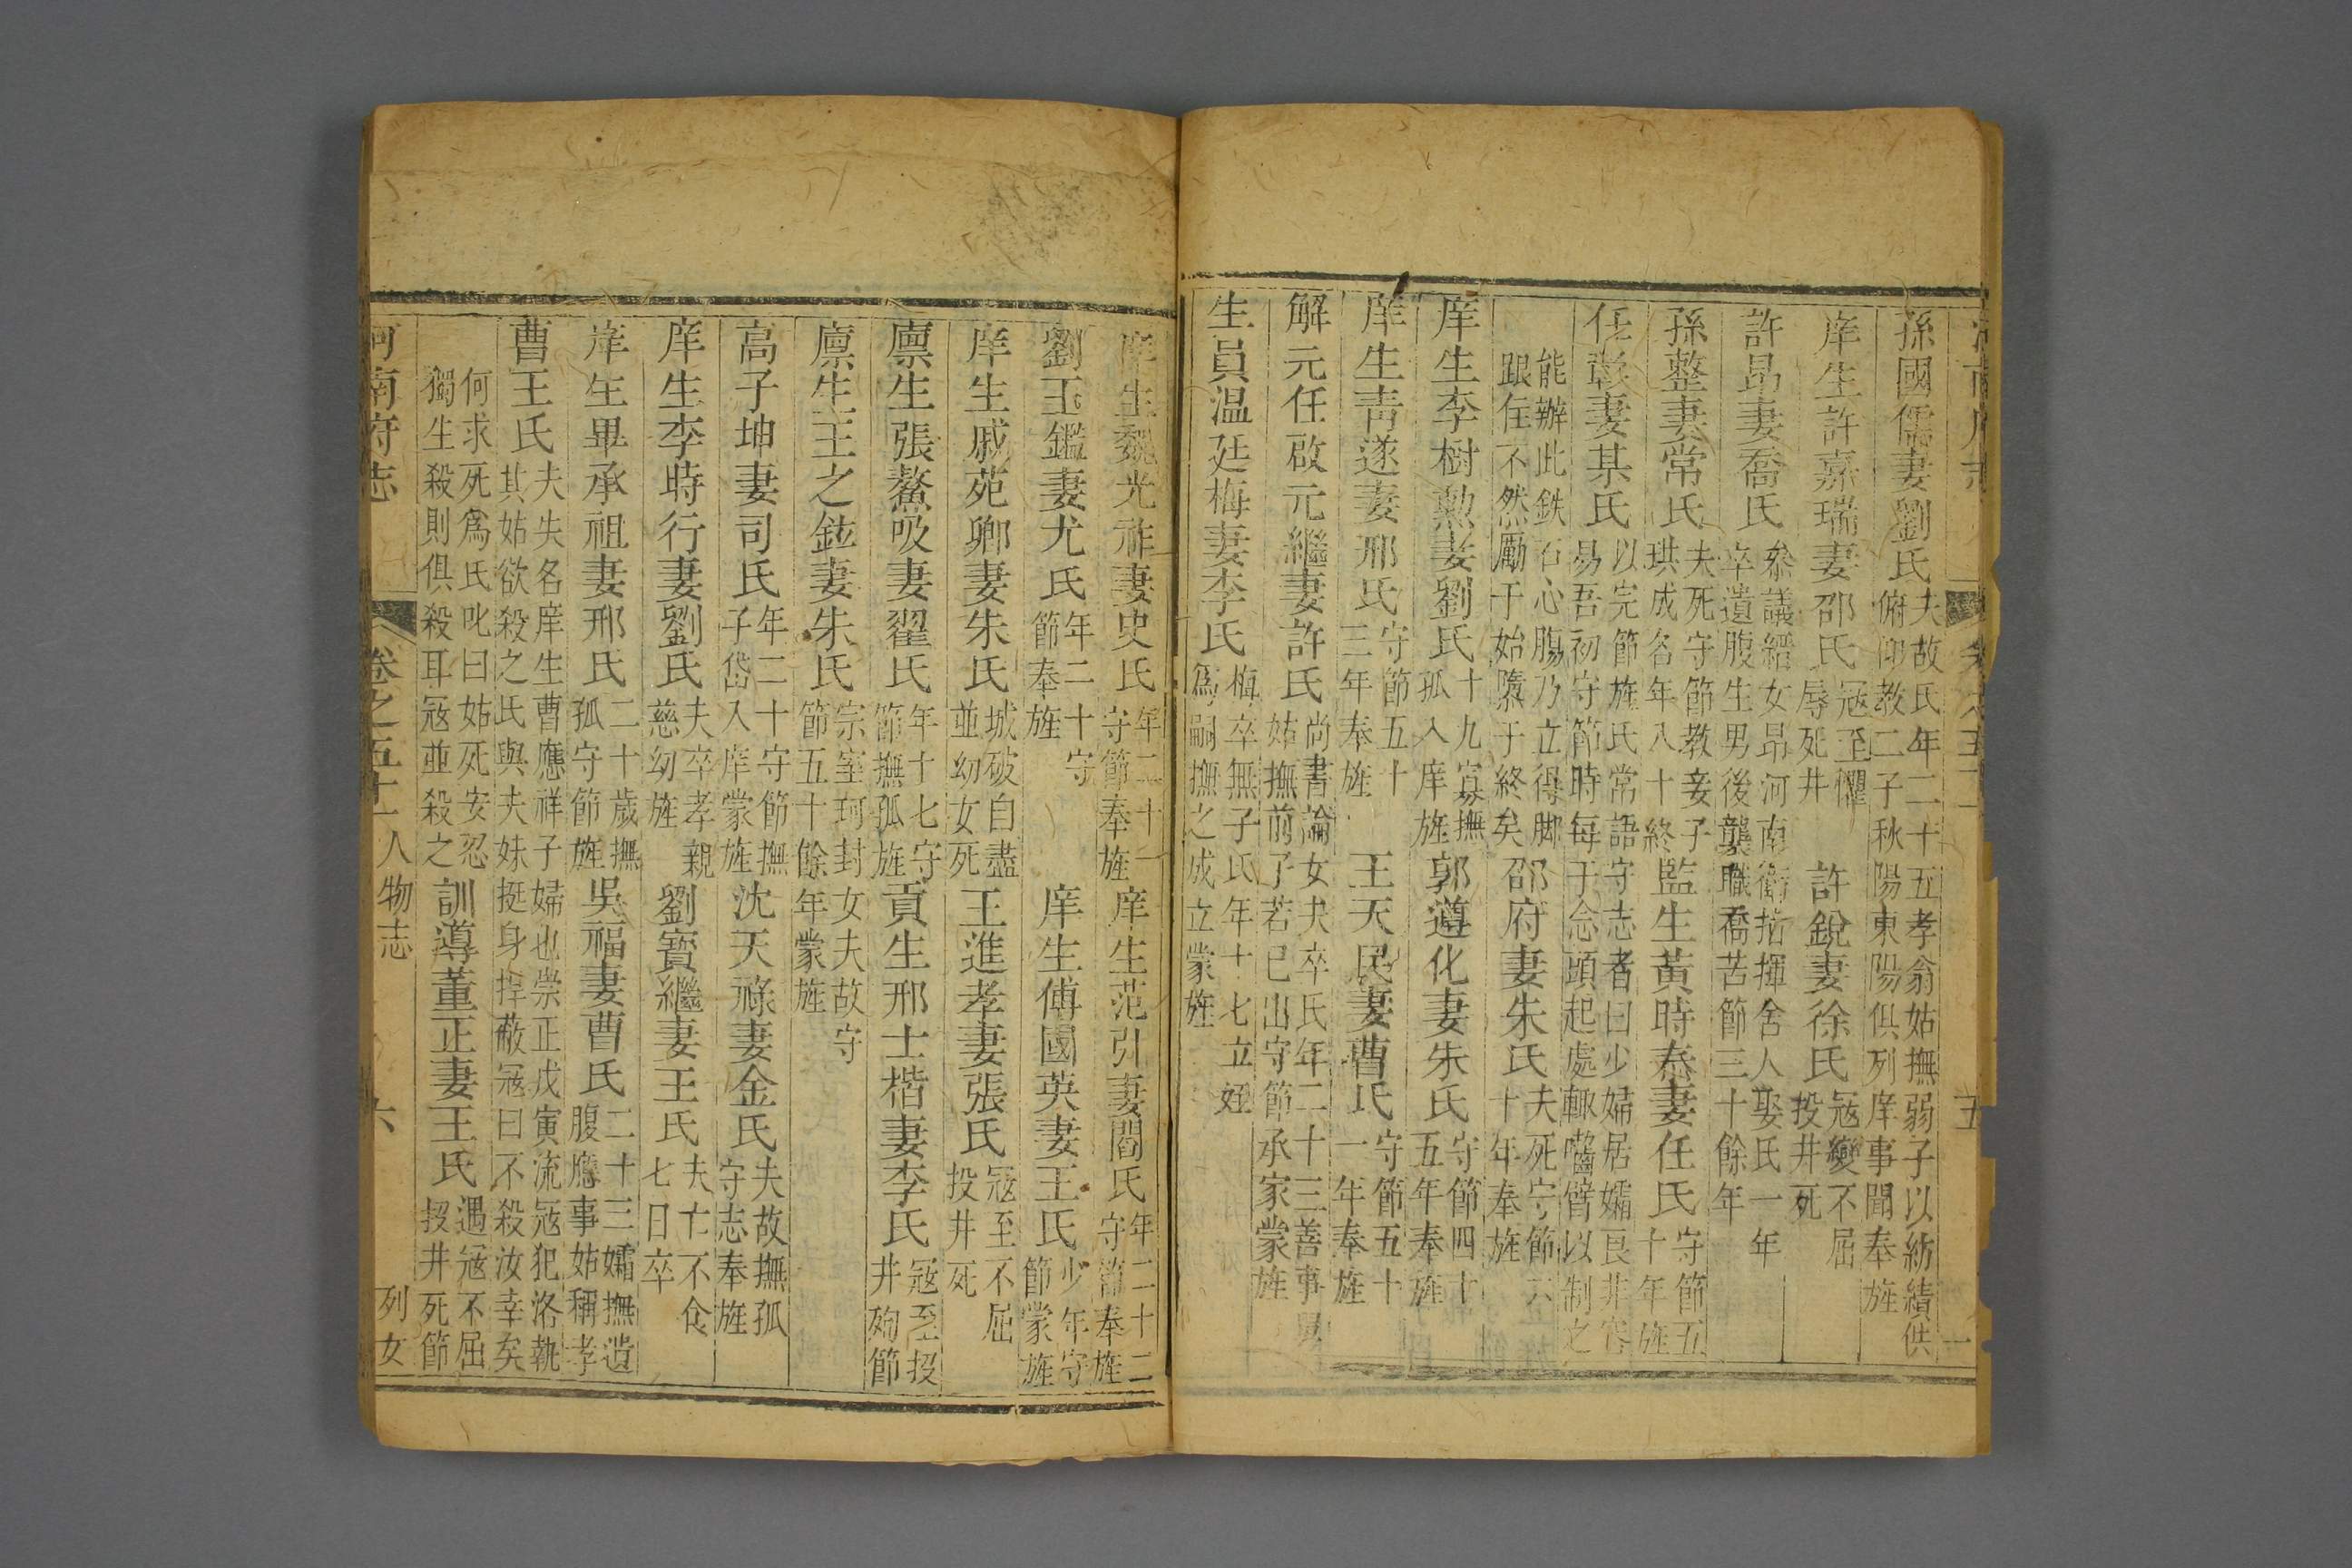 孫國儒妻劉氏夫故氏年二十五孝翁姑撫弱子以紡績供
俯仰教二子秋陽東陽俱列庠事聞奉旌
庠生許嘉瑞妻邵氏寇至懼
辱死井
許銳妻徐氏寇變不屈
投井死
許昂妻喬氏叅議縉女昂河南衛指揮舍人娶氏一年
卒遺腹生男後襲職喬苦節三十餘年
孫整妻常氏夫死守節教妾子
珙成名年八十終
監生黃時泰妻任氏守節五
十年旌
任彰妻某氏以完節旌氏常語守志者曰少婦居孀良非容
易吾初守節時每于念頭起處輙嚙臂以制之
能辦此鉄石心腸乃立得脚
跟住不然勵于始隳于終矣
邵府妻朱氏夫死守節六
十年奉旌
庠生李樹勲妻劉氏十九寡撫
孤入庠旌
郭遵化妻朱氏守節四十
五年奉旌
庠生靑遂妻邢氏守節五十
三年奉旌
王天民妻曹氏守節五十
一年奉旌
解元任啟元繼妻許氏尚書論女夫卒氏年二十三善事
姑撫前子若已出守節承家蒙旌
生員温廷梅妻李氏梅卒無子氏年十七立姪
爲嗣撫之成立蒙旌
五
庠生魏光祚妻史氏年二十一
守節奉旌
庠生范引妻閻氏年二十二
守節奉旌
劉玉鑑妻尤氏年二十守
節奉旌
庠生傅國英妻王氏少年守
節蒙旌
庠生戚苑卿妻朱氏城破自盡
並幼女死
王進孝妻張氏寇至不屈
投井死
廪生張鰲吸妻翟氏年十七守
節撫孤旌
貢生邢士楷妻李氏寇至投
井殉節
廪生王之鉉妻朱氏宗室珂封女夫故守
節五十餘年蒙旌
高子坤妻司氏年二十守節撫
子岱入庠蒙旌
沈天祿妻金氏夫故撫孤
守志奉旌
庠生李時行妻劉氏夫卒孝親
慈幼旌
劉寳繼妻王氏夫亡不食
七日卒
庠生畢承祖妻邢氏二十歲撫
孤守節旌
吳福妻曹氏二十三孀撫遺
腹應事姑稱孝
曹王氏夫失名庠生曹應祥子婦也崇正戊寅流寇犯洛執
其姑欲殺之氏與夫妹挺身捍蔽寇曰不殺汝幸矣
何求死爲氏叱曰姑死安忍
獨生殺則俱殺耳寇並殺之
訓導董正妻王氏遇寇不屈
投井死節
河南府志 卷之五十一 人物志 六 列女